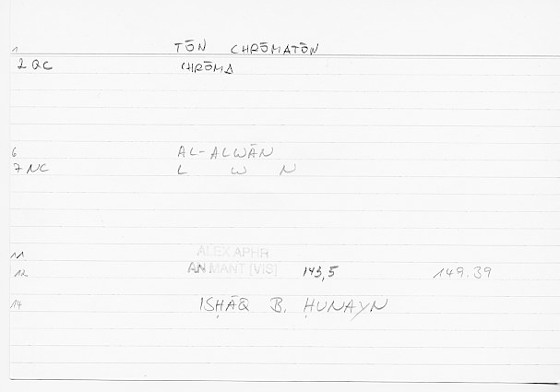 1 TŌN CHRŌMATŌN
2 QC CHRŌMA
6 AL-ALWĀN
7 NC L W N
11 ALEX APHR
12 AN MANT [VIS] 143,5 149.39
14 ISḤĀQ B. ḤUNAYN